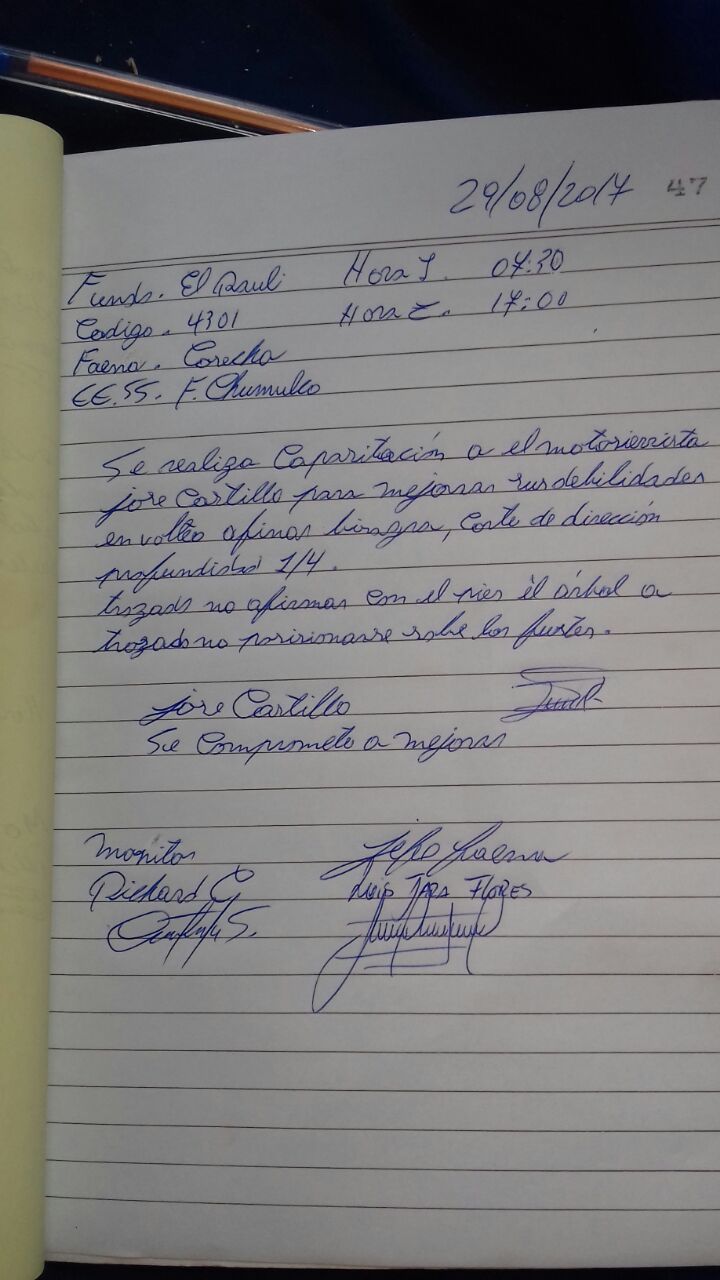 29/08/2017 47
Fundo. El Rauli Hora I. 07:30
Codigo. 4301 Hora T. 17:00
Faena. Cosecha
EE.SS. F. Chumulco
Se realiza Capasitación a el motosierrista
jose Castillo para mejoras sus debilidades
en volteo afinar bisagra, Corte de dirección
profundidad 1/4.
trozado no afirmar con el pies el árbol a
trozado no posisionarse sobe los fustes.
jose Castillo
Se Compromete a mejorar
Monitor jefe faena
Richard G Luis Jara Flores